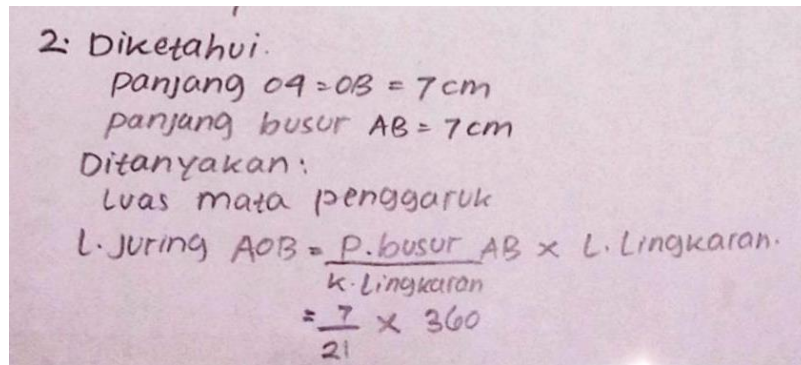 2. Diketahui.
panjang OA = OB = 7 cm
panjang busur AB = 7 cm
Ditanyakan:
Luas mata penggaruk
L. Juring AOB = P. busur AB × L. Lingkaran.
K. Lingkaran
= 7 × 360
21